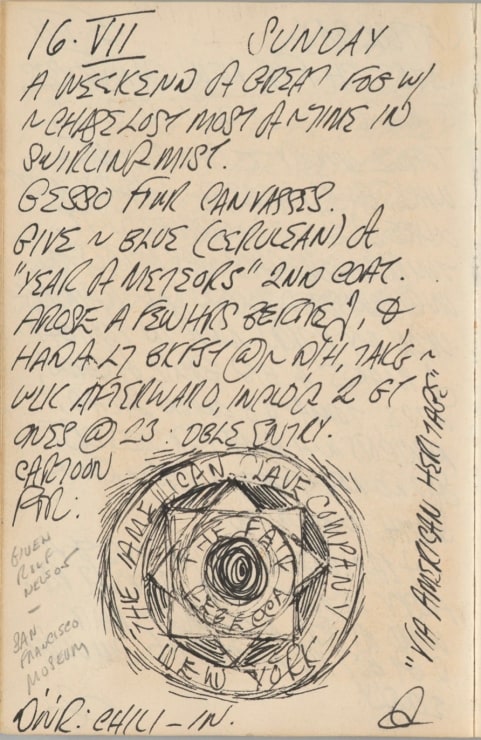 16·VII SUNDAY
A WEEKEND OF GREAT FOG W/
~ CHASE LOST MOST OF ~ TIME IN
SWIRLING MIST.
GESSO FOUR CANVASSES.
GIVE ~ BLUE (CERULEAN) OF
"YEAR OF METEORS" 2ND COAT.
AROSE A FEW HRS BEFORE, &
HAD A BKFST @ ~ D/H, TAKE ~
AFTERWARD, 2 GT
ONES @ 23: DBLE ENTRY.
CARTOON
FOR:
THE AMERICAN SLAVE COMPANY
NEW YORK
THE FATE
REBECCA
GIVEN
ROLF
NELSON
—
SAN
FRANCISCO
MUSEUM
"VIA AMERICAN HERITAGE"
DNR: CHILI – IN.